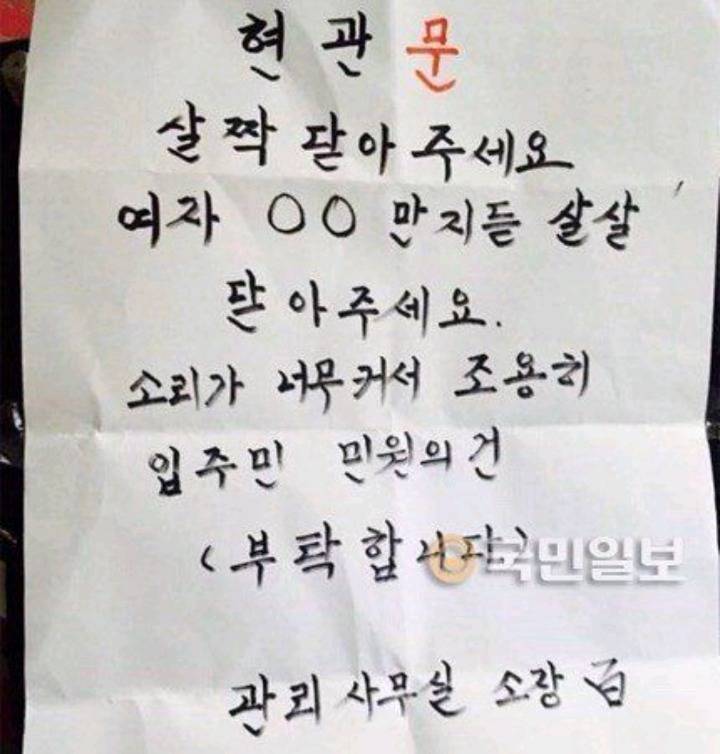 현관문
살짝 닫아 주세요
여자 ○○ 만지듣 살살
닫아주세요.
소리가 너무커서 조용히
입주민 민원의건
(부탁합니다)
국민일보
관리사무실 소장 白